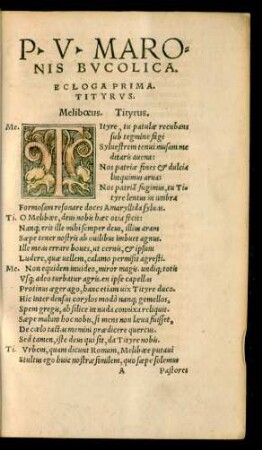 P. V. MARO-
NIS BVCOLICA.
ECLOGA PRIMA.
TITYRVS.
Melibœus. Tityrus.
Me. TItyre, tu patulæ recubans
sub tegmine fagi
Sylvestrem tenui musam me
ditaris auena:
Nos patriæ fines & dulcia
linquimus arua:
Nos patriã fugimus, tu Ti-
tyre lentus in umbra
Formosam resonare doces Amaryllida sylvas.
Ti. O Melibœe, deus nobis hæc otia fecit:
Nanq; erit ille mihi semper deus, illius aram
Sæpe tener nostris ab ouilibus imbuet agnus.
Ille meas errare boues, ut cernis, & ipsum
Ludere, quæ uellem, calamo permisit agresti.
Me. Non equidem inuideo, miror magis. undiq; totis
Vsq; adeo turbatur agris. en ipse capellas
Protinus æger ago, hanc etiam uix Tityre duco.
Hic inter densas corylos modò nanq; gemellos,
Spem gregis, ah silice in nuda connixa reliquit.
Sæpe malum hoc nobis, si mens non læua fuisset,
De cælo tactas memini prædicere quercus.
Sed tamen, iste deus qui sit, da Tityre nobis.
Ti. Vrbem, quam dicunt Romam, Melibœe putaui
Stultus ego huic nostræ similem, quo sæpe solemus
A Pastores